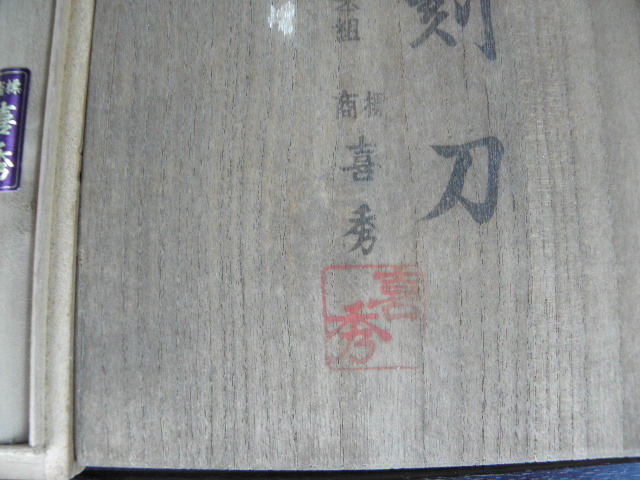 刻刀
本組
商標 喜秀
喜秀
商標 喜秀